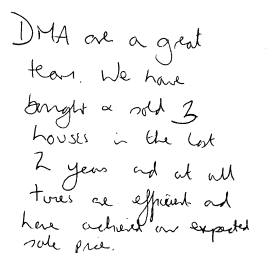 DMA are a great
team. We have
bought & sold 3
houses in the last
2 years and at all
times are efficient and
have achieved our expected
sale price.